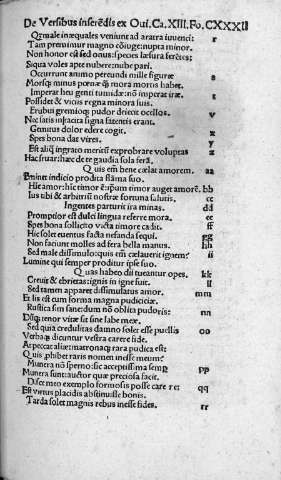 De Versibus inserẽdis ex Oui. Ca. XIII. Fo. CXXXII
Q̃male inæquales veniunt ad aratra iuuenci: r
Tam premitur magno cõiuge: nupta minor.
Non honor est sed onus: species læsura ferẽtes:
Siqua voles apte nubere: nube pari.
Occurrunt animo pereundi mille figuræ s
Morsq; minus pœnæ q̃ mora mortis habet.
Imperat heu genti tumidæ: nõ imperat iræ. t
Possidet & vicis regna minora suis.
Erubui gremioq; pudor deiecit ocellos. v
Nec satis infracta signa fatentis erant.
Genitus dolor edere cogit. x
Spes bona dat vires. y
Est aliq̃ ingrato meritũ exprobrare voluptas z
Hac fruar: hæc de te gaudia sola ferã.
Quis em̃ bene cælat amorem. aa
Eminet indicio prodita flãma suo.
Hic amor: hic timor ẽ: ipsum timor auget amorẽ. bb
Ius tibi & arbitriũ nostræ fortuna salutis. cc
Ingentes parturit ira minas. dd
Promptior est dulci lingua referre mora. ee
Spes bona sollicito victa timore cadit. ff
Hic solet euentus facta nefanda sequi. gg
Non faciunt molles ad fera bella manus. hh
Sed male dissimulo: quis em̃ cælauerit ignem? ii
Lumine qui semper proditur ipse suo.
Quas habeo dii tueantur opes. kk
Creuit & ebrietas: ignis in igne fuit. ll
Sed tamen apparet dissimulatus amor. mm
Et lis est cum forma magna pudiciciæ.
Rustica sim sane: dum nõ oblita pudoris: nn
Disq; tenor vitæ sit sine labe meæ.
Sed quia credulitas damno solet esse puellis oo
Verbaq; dicuntur vestra carere fide.
At peccat aliæ: matronaq; rara pudica est:
Quis phibet raris nomen inesse meum?
Munera nõ sperno: sic acceptissima semp pp
Munera sunt: auctor quæ preciosa facit.
Disce meo exemplo formosis posse carere: qq
Est virtus placidis abstinuisse bonis.
Tarda solet magnis rebus inesse fides. rr